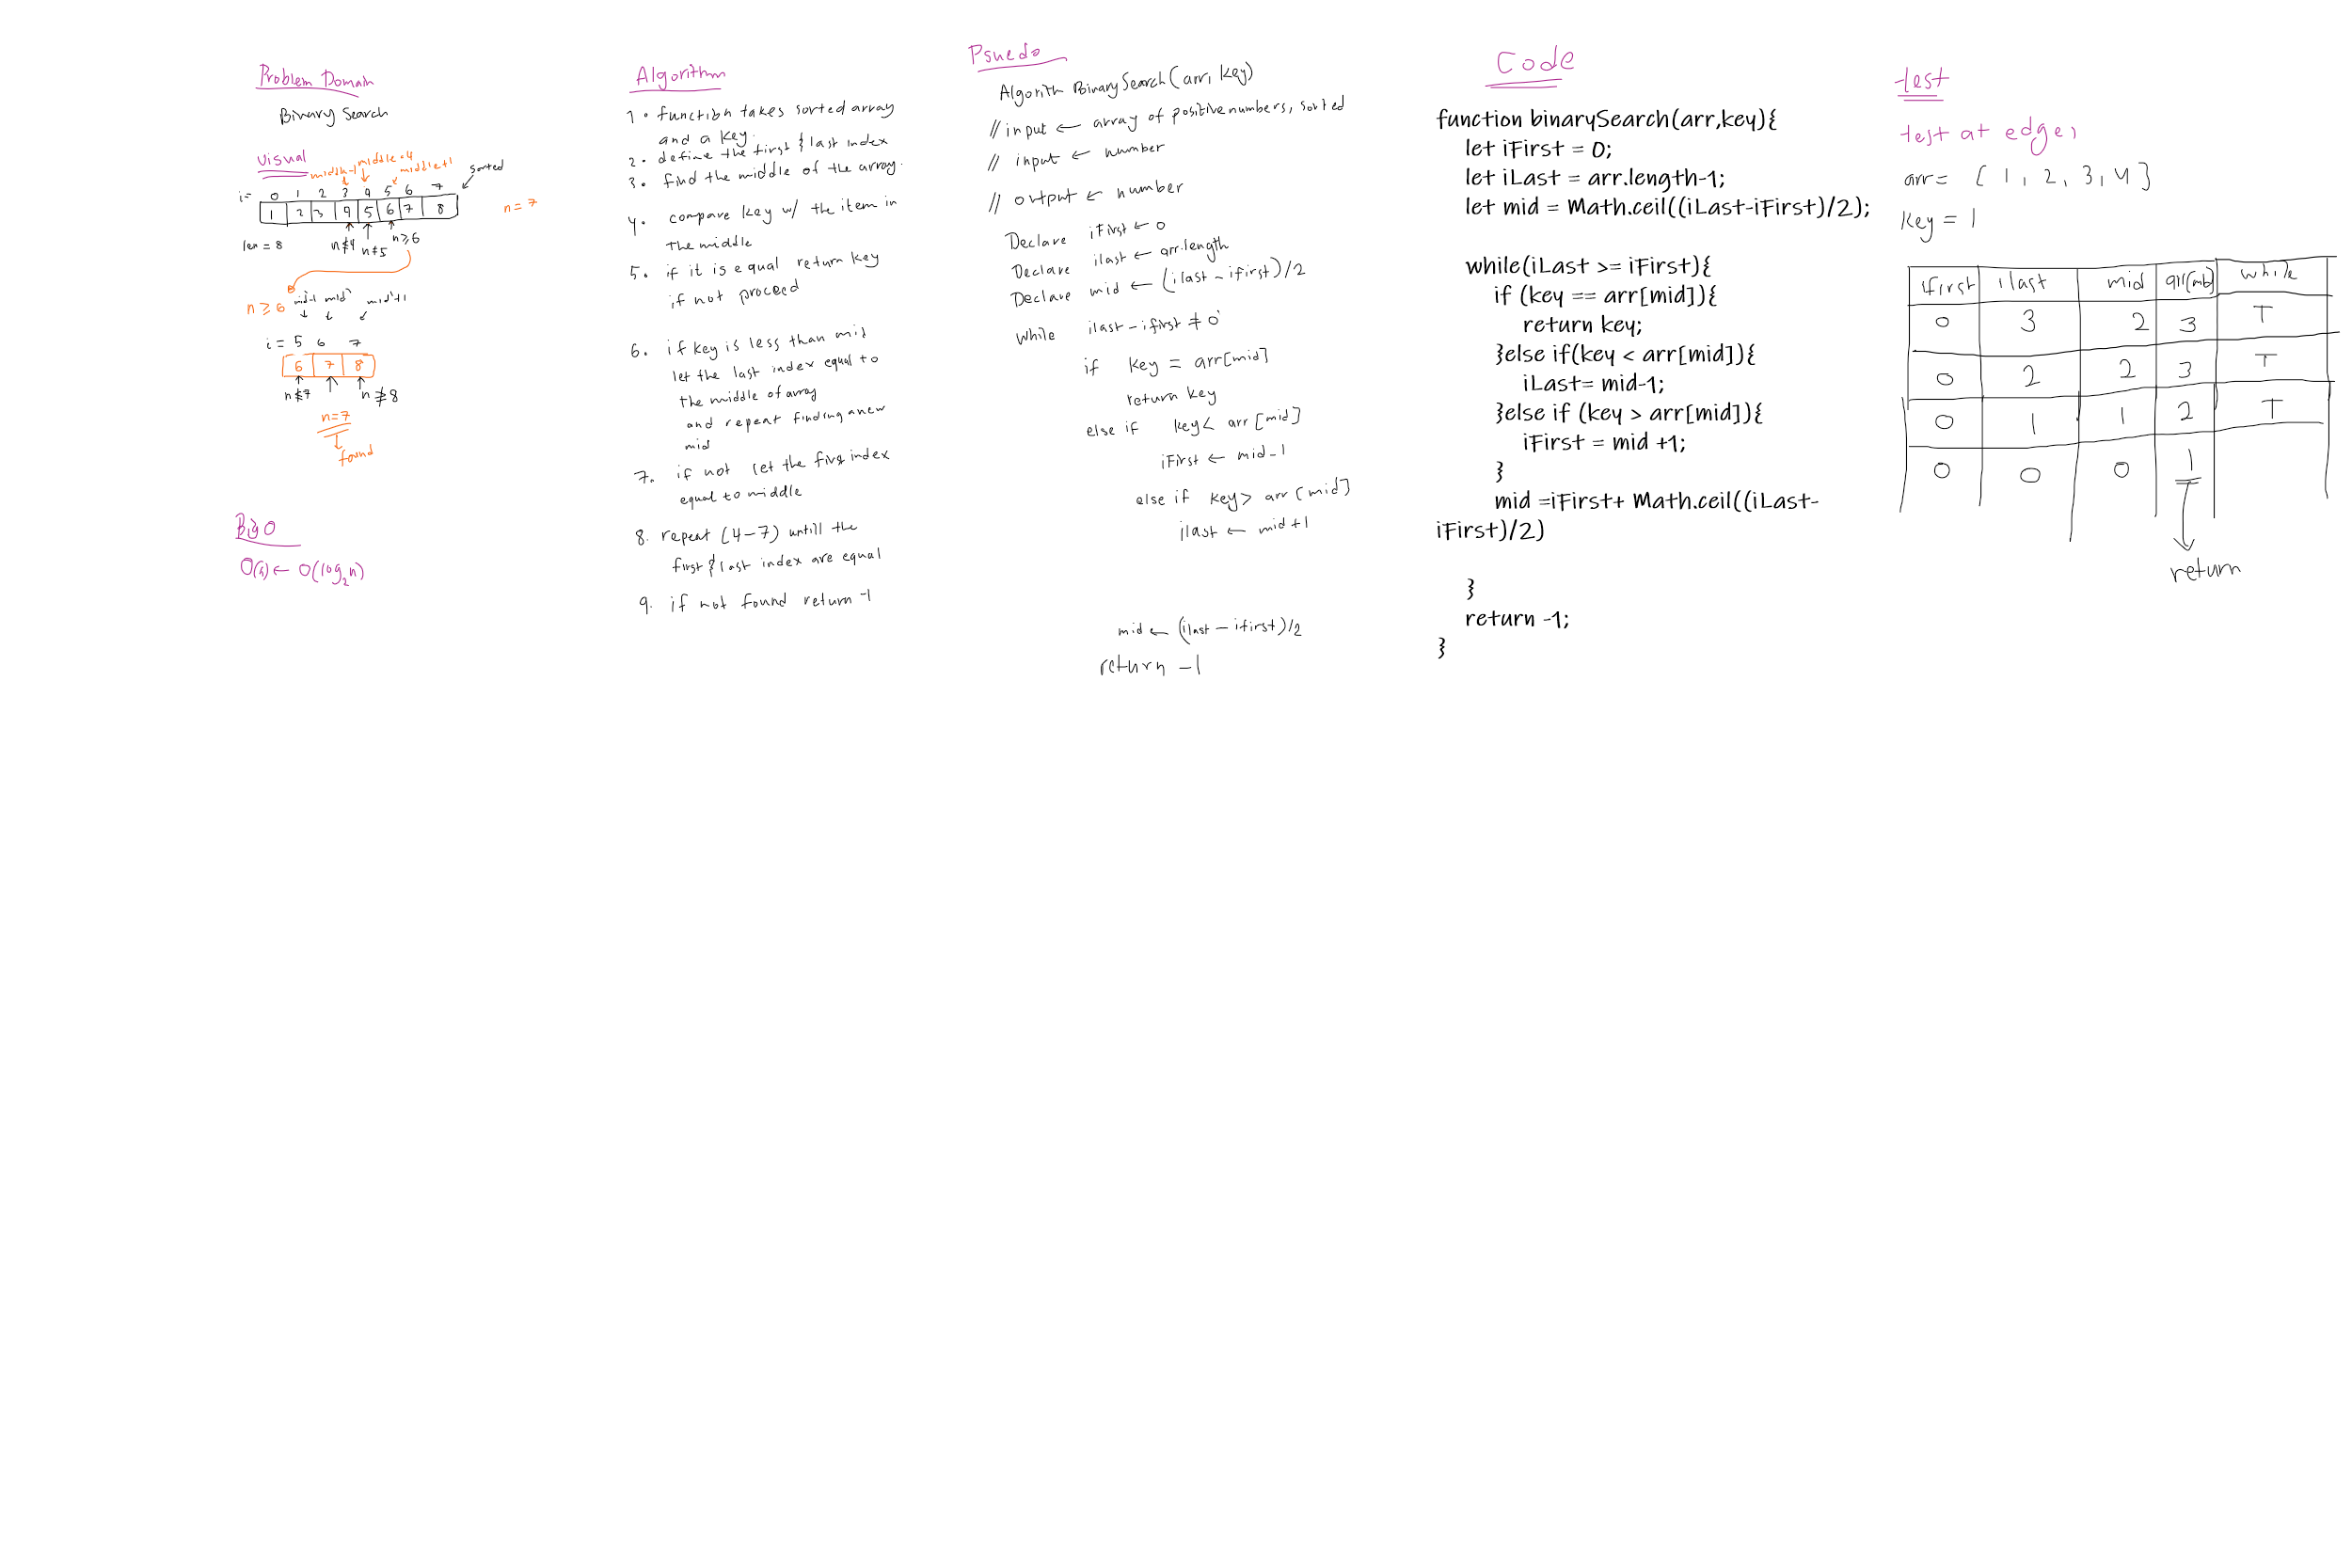 Problem Domain
Binary Search
Visual
middle-1 middle=4 middle+1
sorted
i= 0 1 2 3 4 5 6 7
1 2 3 4 5 6 7 8
n = 7
len = 8
n≮4 n≠5 n≥6
n ≥ 6 mid-1 mid mid+1
i = 5 6 7
6 7 8
n≮7 n≱8
n=7
found
Big O
O(n) ← O(log₂n)
Algorithm
1. function takes sorted array
and a key.
2. define the first & last index
3. find the middle of the array.
4. compare key w/ the item in
the middle
5. if it is equal return key
if not proceed
6. if key is less than mid
let the last index equal to
the middle of array
and repeat finding a new
mid
7. if not let the first index
equal to middle
8. repeat (4-7) untill the
first & last index are equal
9. if not found return -1
Psuedo
Algorith BinarySearch(arr, key)
// input ← array of positive numbers, sorted
// input ← number
// output ← number
Declare iFirst ← 0
Declare ilast ← arr.length
Declare mid ← (ilast - ifirst)/2
while ilast - ifirst ≠ 0
if key = arr[mid]
return key
else if key< arr[mid]
iFirst ← mid-1
else if key> arr[mid]
ilast ← mid+1
mid ← (ilast - ifirst)/2
return -1
Code
function binarySearch(arr,key){
let iFirst = 0;
let iLast = arr.length-1;
let mid = Math.ceil((iLast-iFirst)/2);
while(iLast >= iFirst){
if (key == arr[mid]){
return key;
}else if(key < arr[mid]){
iLast= mid-1;
}else if (key > arr[mid]){
iFirst = mid +1;
}
mid =iFirst+ Math.ceil((iLast-
iFirst)/2)
}
return -1;
}
test
test at edge,
arr= [1, 2, 3, 4]
key = 1
ifirst ilast mid arr(mb) while
0 3 2 3 T
0 2 2 3 T
0 1 1 2 T
0 0 0 1
return